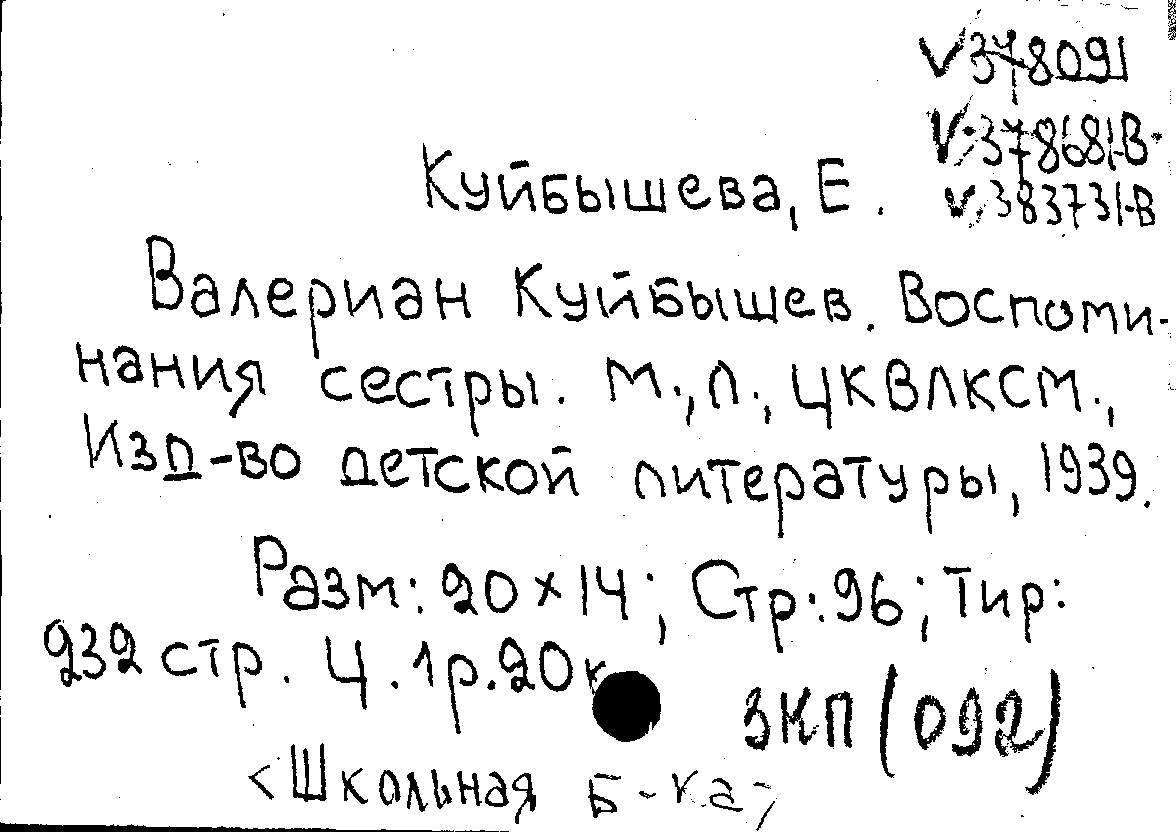 V378091
V.378681-В.
V.383731-В
Куйбышева, Е.
Валериан Куйбышев. Воспоми-
нания сестры. М., Л., ЦКВЛКСМ.,
Изд-во детской литературы, 1939.
Разм: 20 х 14; Стр: 96; Тир:
232 стр. Ц. 1р. 20к
ЗКП (092)
<Школьная б-ка>